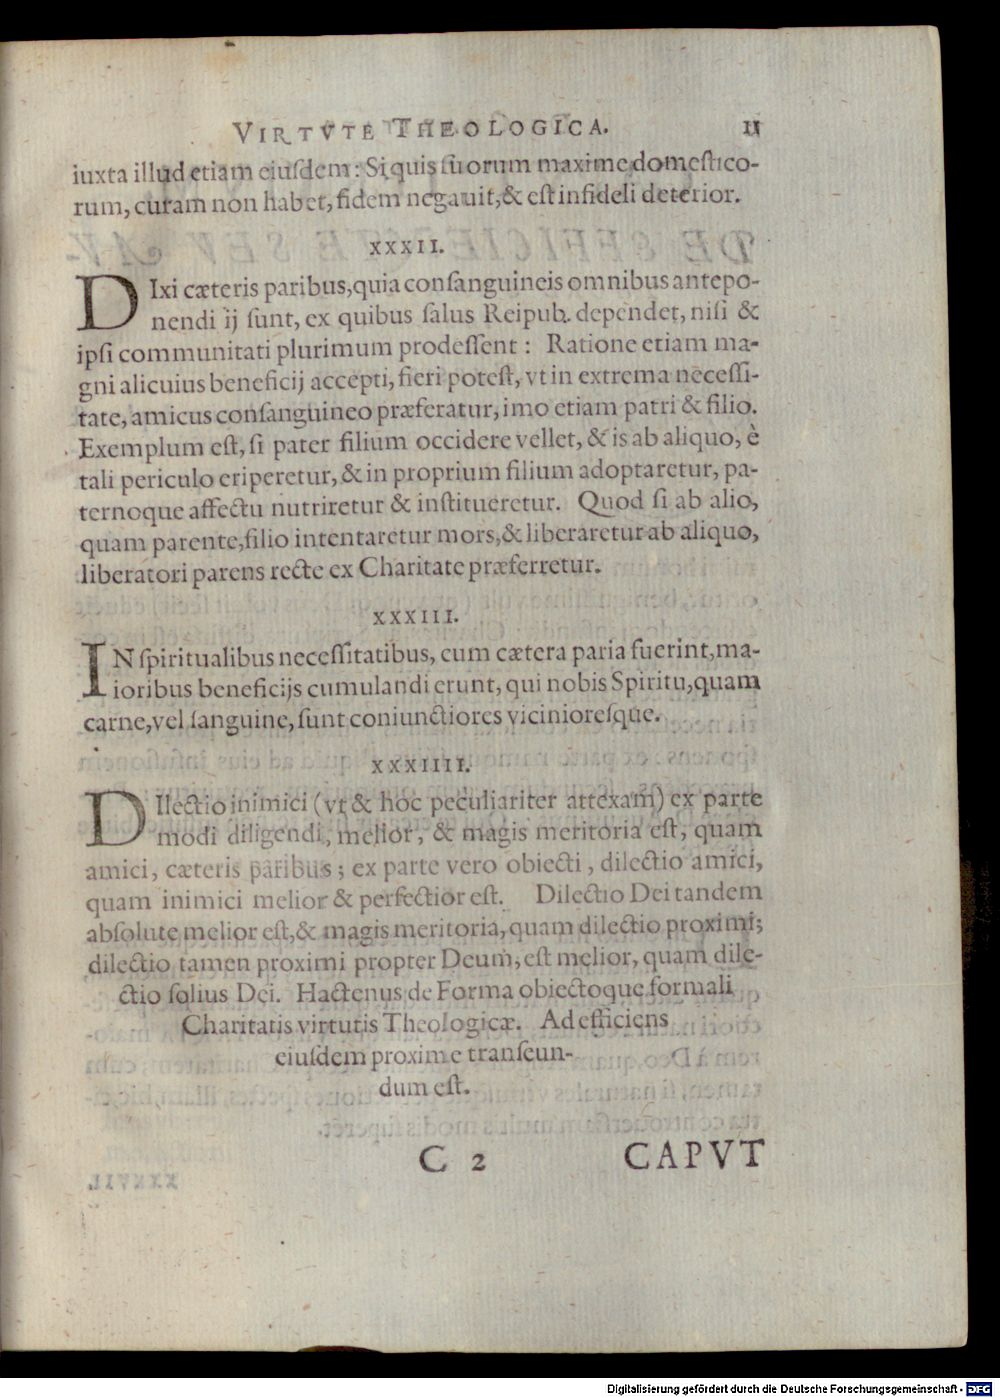 VIRTVTE THEOLOGICA. 11
iuxta illud etiam eiuſdem: Si quis ſuorum maxime domeſtico-
rum, curam non habet, fidem negauit, & eſt infideli deterior.
XXXII.
DIxi cæteris paribus, quia conſanguineis omnibus antepo-
nendi ij ſunt, ex quibus ſalus Reipub. dependet, niſi &
ipſi communitati plurimum prodeſſent: Ratione etiam ma-
gni alicuius beneficij accepti, fieri poteſt, vt in extrema neceſſi-
tate, amicus conſanguineo præferatur, imo etiam patri & filio.
Exemplum eſt, ſi pater filium occidere vellet, & is ab aliquo, è
tali periculo eriperetur, & in proprium filium adoptaretur, pa-
ternoque affectu nutriretur & inſtitueretur. Quod ſi ab alio,
quam parente, filio intentaretur mors, & liberaretur ab aliquo,
liberatori parens recte ex Charitate præferretur.
XXXIII.
IN ſpiritualibus neceſſitatibus, cum cætera paria fuerint, ma-
ioribus beneficijs cumulandi erunt, qui nobis Spiritu, quam
carne, vel ſanguine, ſunt coniunctiores vicinioreſque.
XXXIIII.
DIlectio inimici (vt & hoc peculiariter attexam) ex parte
modi diligendi, melior, & magis meritoria eſt, quam
amici, cæteris paribus; ex parte vero obiecti, dilectio amici,
quam inimici melior & perfectior eſt. Dilectio Dei tandem
abſolute melior eſt, & magis meritoria, quam dilectio proximi;
dilectio tamen proximi propter Deum, eſt melior, quam dile-
ctio ſolius Dei. Hactenus de Forma obiectoque formali
Charitatis virtutis Theologicæ. Ad efficiens
eiuſdem proxime tranſeun-
dum eſt.
C 2 CAPVT
Digitalisierung gefördert durch die Deutsche Forschungsgemeinschaft - DFG